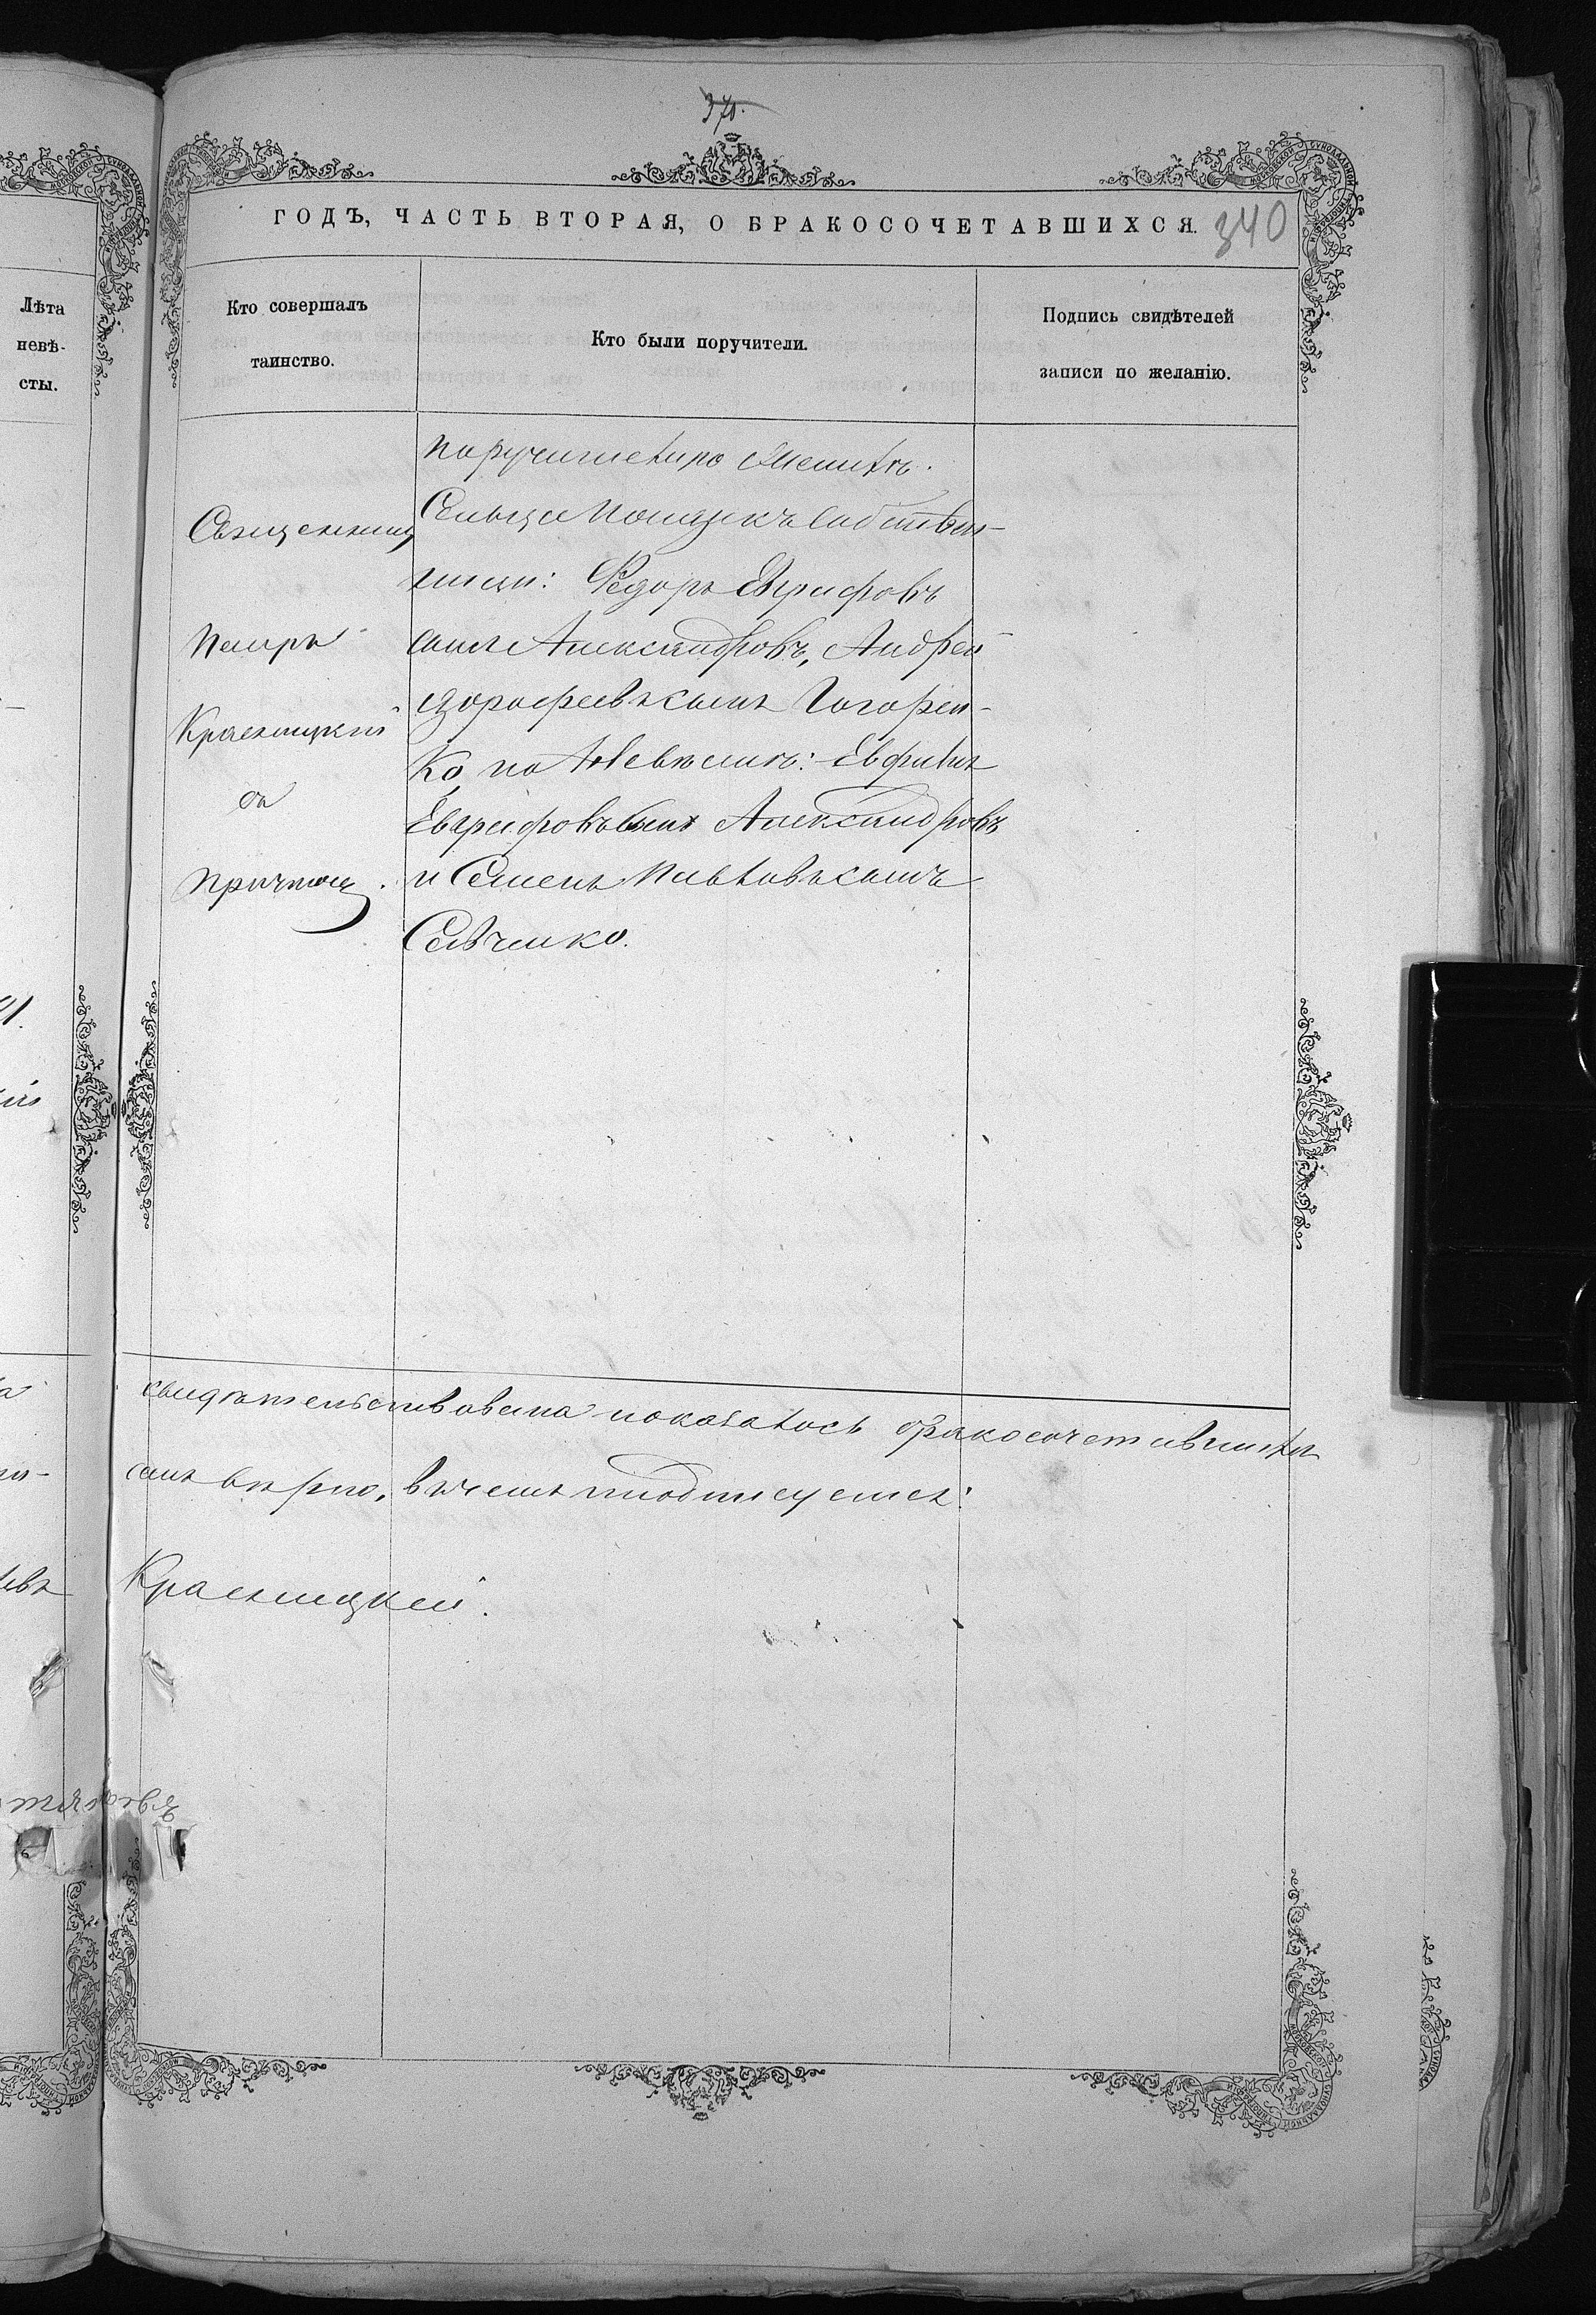 340
ГОДЪ, ЧАСТЬ ВТОРАЯ, О БРАКОСОЧЕТАВШИХСЯ.
Лѣта
невѣ-
сты.
Кто совершалъ
таинство.
Кто были поручители.
Подпись свидѣтелей
записи по желанію.
Священникъ
Петръ
Красницкій
съ
причтомъ.
Сельца собствен-
ники: Федоръ Евграфовъ
сынъ Александровъ, Андрей
Дорофеевъ сынъ Гогорен-
ко, по невѣстѣ:
Евграфовъ сынъ Александровъ
и Семенъ Павловъ сынъ
Савченко.
свидѣтельствована показалось бракосочетавшихся
вѣрно, въ чемъ и подписуемся:
Красницкій.